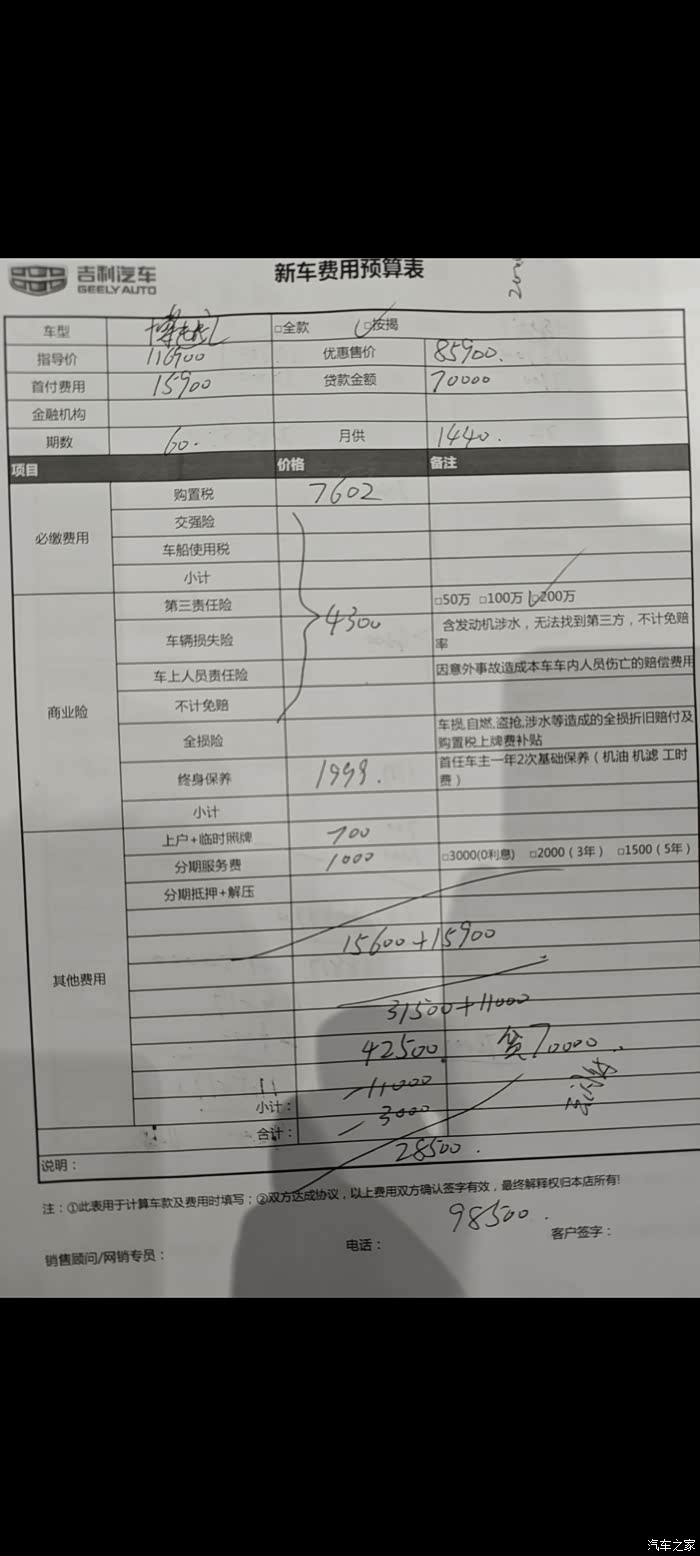 吉利汽车
GEELY AUTO
新车费用预算表
车型 博越L □全款 □按揭
指导价 116900 优惠售价 85900.
首付费用 15900 贷款金额 70000
金融机构
期数 60. 月供 1440.
项目 价格 备注
必缴费用
购置税 7602
交强险
车船使用税
小计
商业险
第三责任险 □50万 □100万 □200万
4300
车辆损失险 含发动机涉水，无法找到第三方，不计免赔率
车上人员责任险 因意外事故造成本车车内人员伤亡的赔偿费用
不计免赔
全损险 车损,自燃,盗抢,涉水等造成的全损折旧赔付及
购置税上牌费补贴
终身保养 1999. 首任车主一年2次基础保养（机油 机滤 工时
费）
小计
其他费用
上户+临时照牌 700
分期服务费 1000 □3000(0利息) □2000（3年） □1500（5年）
分期抵押+解压
15600+15900
31500+11000
42500. 贷70000.
-11000
小计：
-3000
合计：
28500.
说明：
注：①此表用于计算车款及费用时填写；②双方达成协议，以上费用双方确认签字有效，最终解释权归本店所有!
98500.
销售顾问/网销专员： 电话： 客户签字：
汽车之家